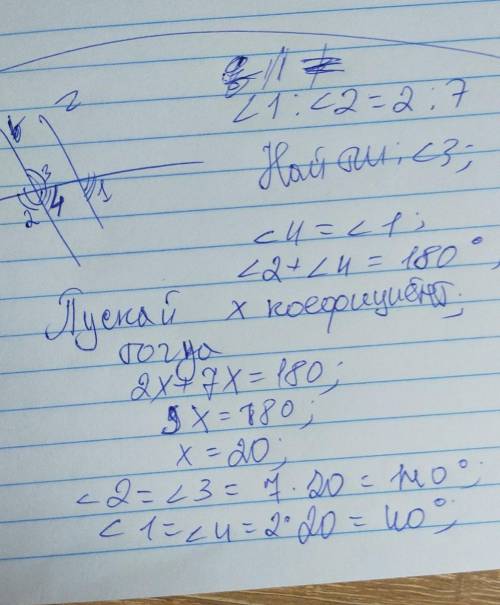 ∠1 : ∠2 = 2 : 7
Найти: ∠3;
3
2 4 1
∠4 = ∠1;
∠2 + ∠4 = 180°,
Пускай x коефициент;
тогда
2x + 7x = 180;
9x = 180;
x = 20;
∠2 = ∠3 = 7 · 20 = 140°;
∠1 = ∠4 = 2 · 20 = 40°;